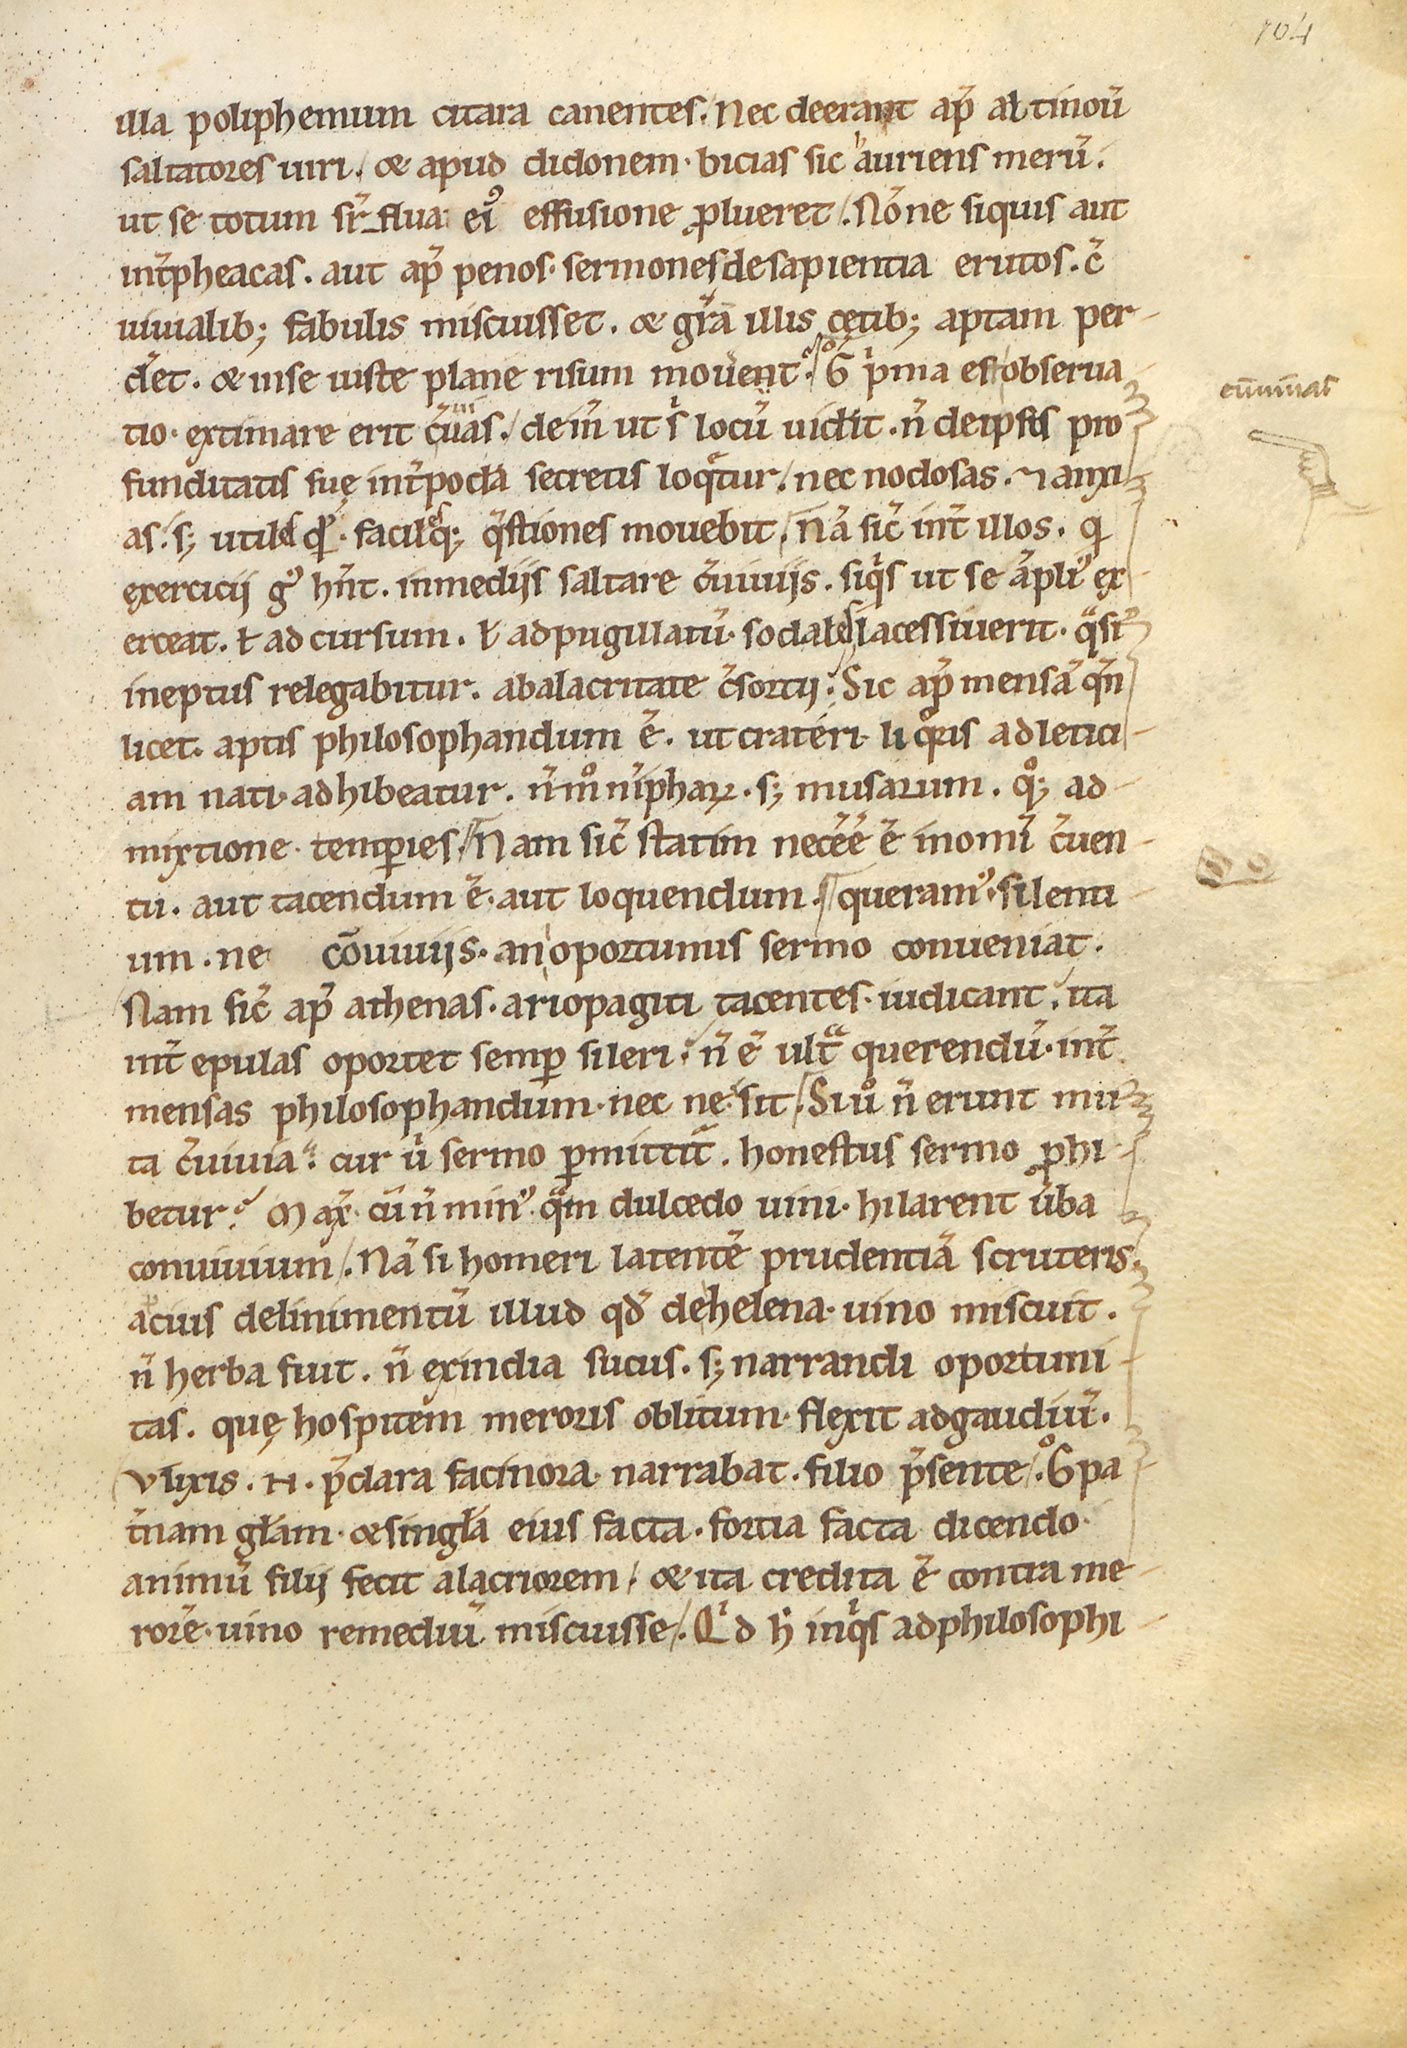 104
illa poliphemum citara canentes. Nec deerant ap̄ altinoū
saltatores uiri. & apud didonem. bicias sic hauriens merū.
ut se totum sr̄ flua ei᾿ effusione ꝓlueret. Nōne siquis aut
int̄ pheacas. aut ap̄ penos. sermones de sapientia erutos. c̄
uiuialib; fabulis miscuisset. & gr̄am illis cetib; aptam per
d̄et. & in se iuste plane risum mouent.
tio. extimare erit
funditatis suę int̄ pocla secretis loqͣtur. nec nodosas. ⁊ anxi
as. s; utiles facilesq; q̄stiones mouebit. Nā sic̄ int̄ illos. qͥ
exercicii gͦ hn̄t. in mediis saltare c̄uiuiis. siqͥs ut se āpli᾿ ex
erceat. ł ad cursum. ł ad pugillatū. sodales lacessiuerit. qͣsi
ineptus relegabitur. ab alacritate c̄sortii. Sic ap̄ mensā qn̄
licet. aptis philosophandum ē. ut crateri. liqͦris ad letici
am nati. adhibeatur. n̄ mͦ nīphaꝝ. s; musarum. qͦ; ad
mixtione temꝑies. Nam sic̄ statim necēē ē in omī c̄uen
tu. aut tacendum ē. aut loquendum. queram᾿. silenti
um. ne cōuiuiis. an oportunus sermo conueniat.
Nam sic̄ ap̄ athenas. ariopagiti tacentes. iudicant. ita
int̄ epulas oportet semꝑ sileri. n̄ ē ultͣ querendū. int̄
mensas philosophandum. nec ne sit. Si ū n̄ erunt mu
ta c̄uiuia. cur ū sermo ꝑmittit᾿. honestus sermo ꝓhi
betur? Max̄. cū n̄ min᾿. qͣm dulcedo uini. hilarent ūba
conuiuium. Nā si homeri latentē prudentiā scruteris.
acius delinimentū illud qd̄ de helena. uino miscuit.
n̄ herba fuit. n̄ ex india sucus. s; narrandi oportuni
tas. quę hospitem meroris oblitum. flexit ad gaudiū.
Vlixis. N. p̄clara facinora narrabat. filio p̄sente. Gͦ pa
t̄nam gl̄am. & singl̄a eius facta. fortia facta dicendo.
animū filii fecit alacriorem. & ita credita ē contra me
rorē. uino remediū miscuisse. Qͥd h̄ inqͥs ad philosophi